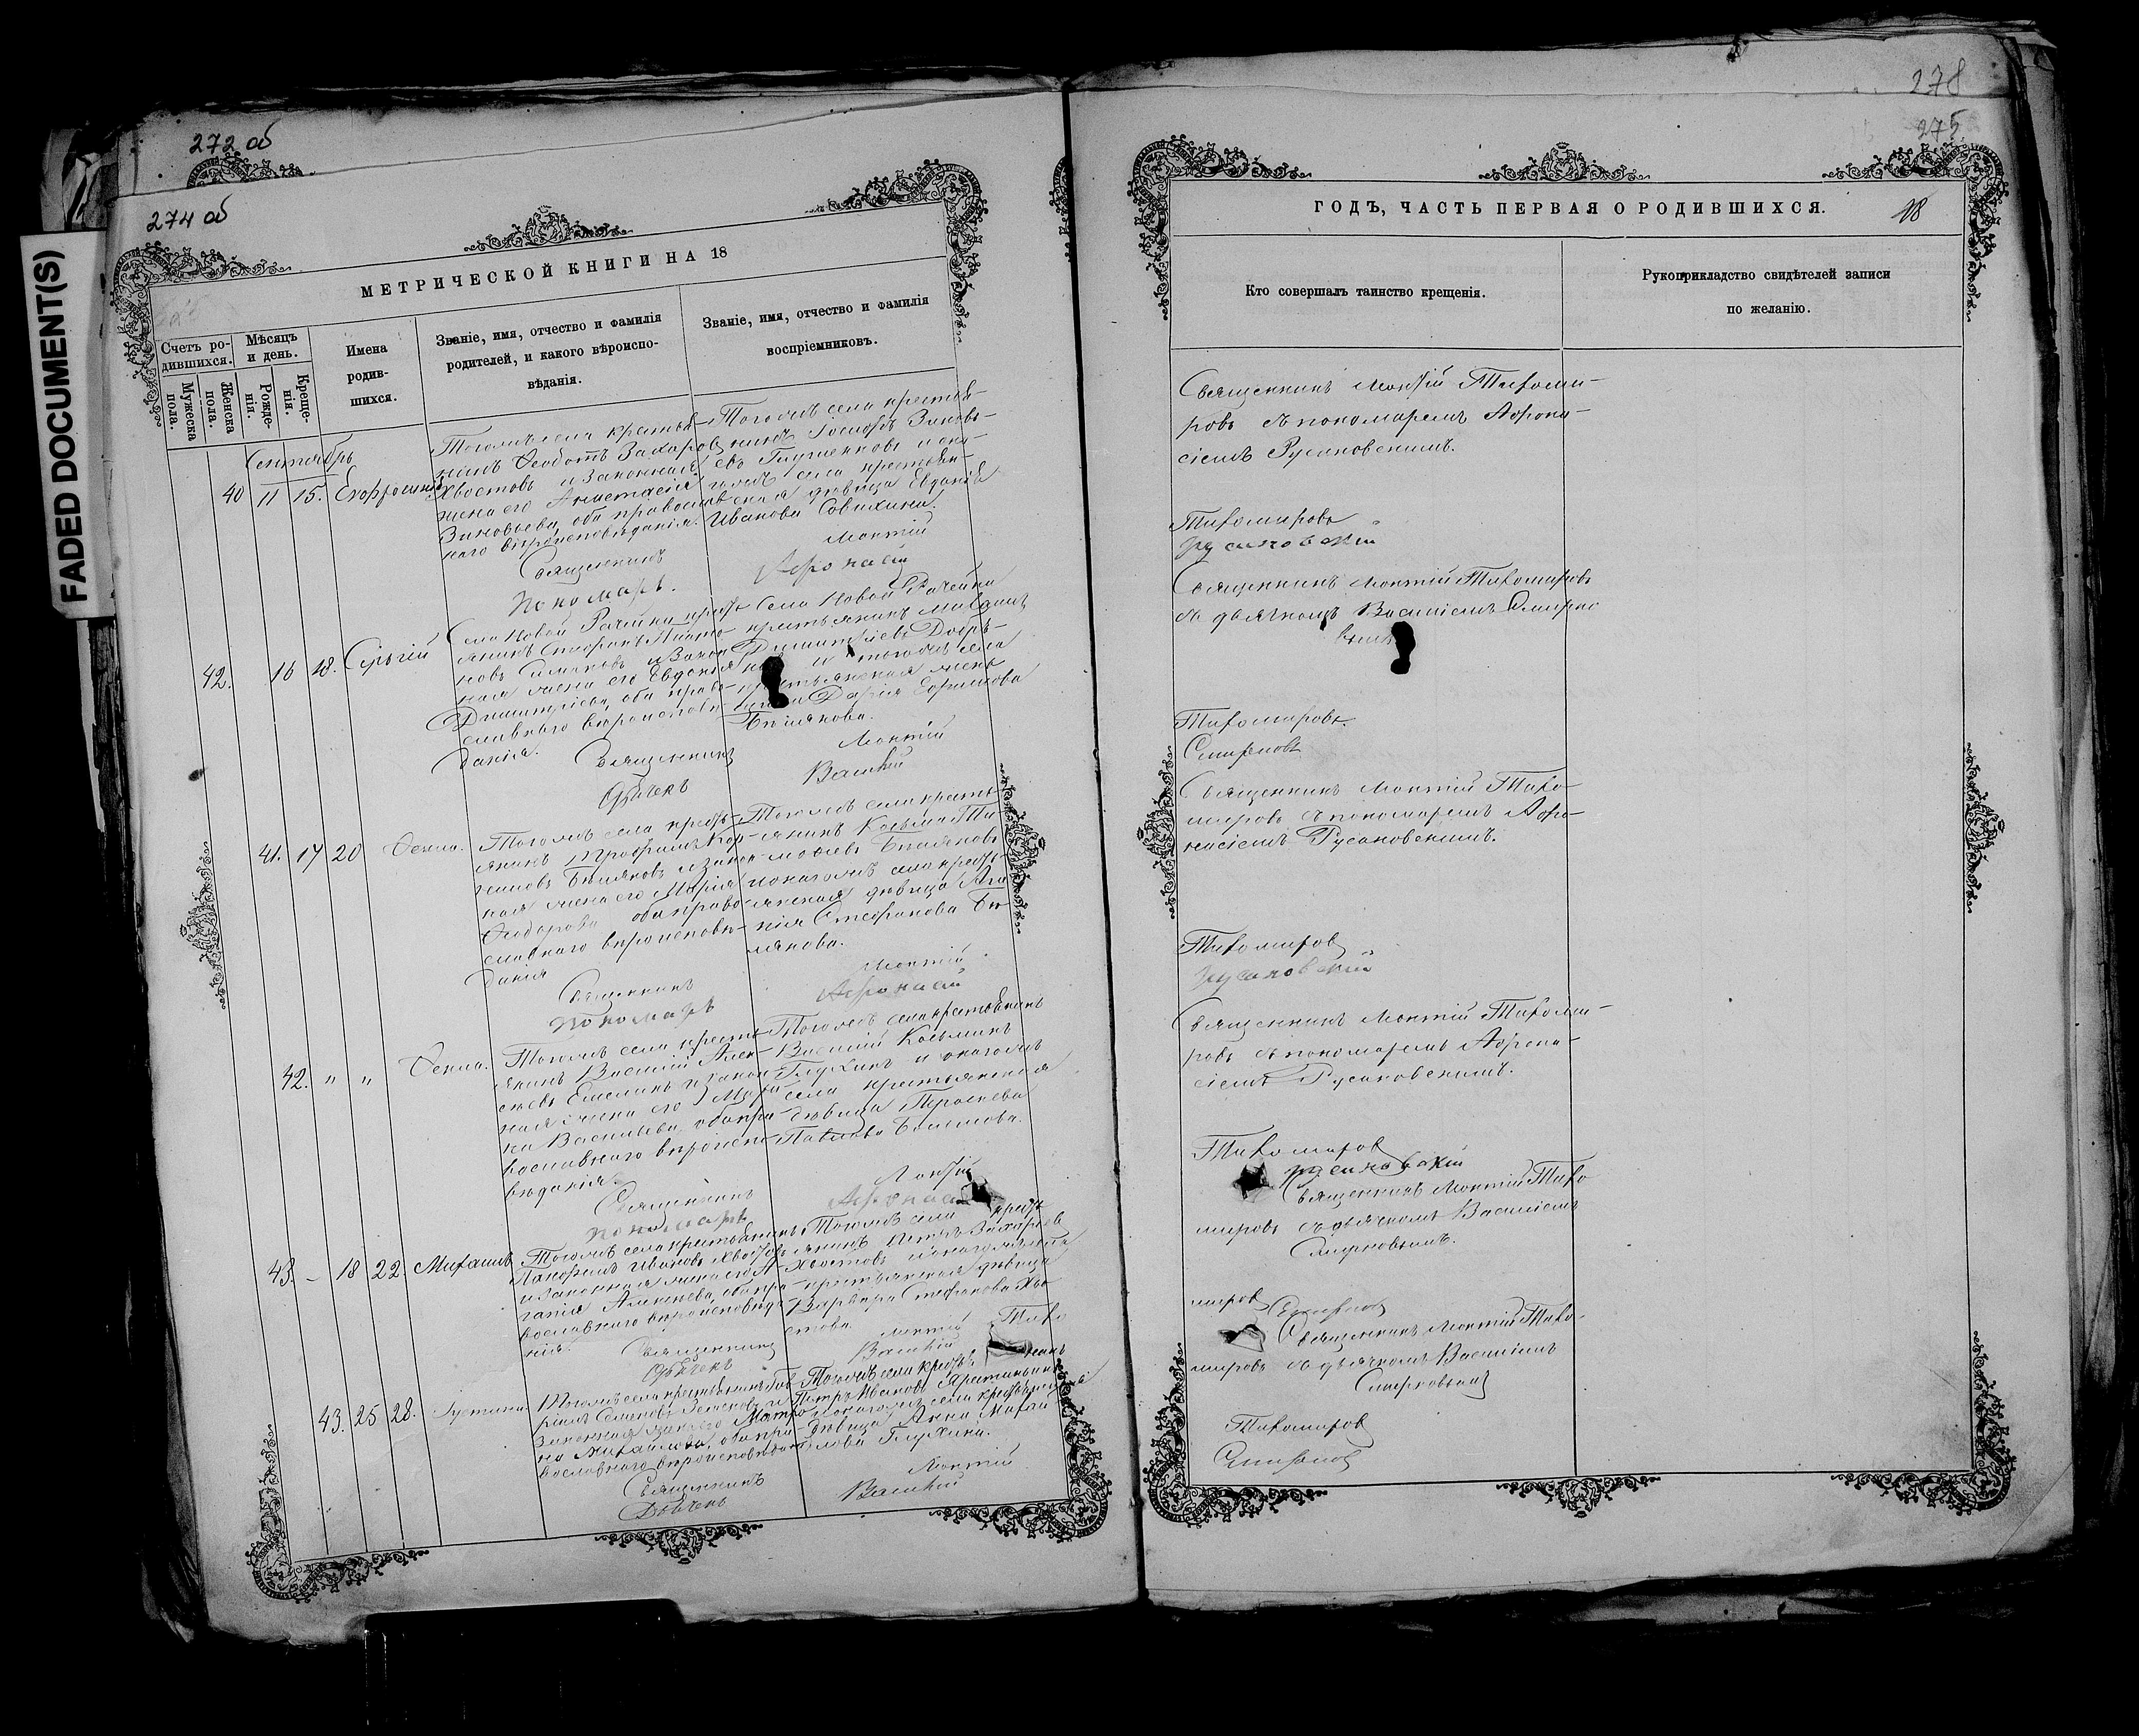 FADED DOCUMENT(S)
272 об
274 об
МЕТРИЧЕСКОЙ КНИГИ НА 18
Счетъ ро-
дившихся.
Мужеска пола.
Женска пола.
Мѣсяцъ
и день.
Рожде-
нія.
Креще-
нія.
Имена
родив-
шихся.
Званіе, имя, отчество и фамилія
родителей, и какого вѣроиспо-
вѣданія.
Званіе, имя, отчество и фамилія
воспріемниковъ.
Сентябрь
40 11 15.
Тогожъ села кресть-
нинъ Ѳеодотъ Захаровъ
Хвостовъ и законная
жена его Анастасія
Зиновьева, оба православ-
наго вѣроисповѣданія.
Тогожъ села крестья-
нинъ Іосифъ Зиновь-
евъ
села крестьян-
ская дѣвица Евдокія
Иванова
Священникъ Монтій
Пономарь. Афонасій
42. 16 18. Сергій
Села Новой Рачейки кресть-
янинъ Стефанъ
новъ Симаковъ и закон-
ная жена его Евдокія
Димитріева, оба право-
славнаго вѣроисповѣ-
данія.
Села Новой Рачейки
крестьянинъ Михаилъ
Димитріевъ
и тогожъ села
крестьянская жена
Дарія Ефимова
Бѣлякова.
Священникъ Монтій
Дьячекъ Василій
41. 17 20 Ѳекла.
Тогожъ села кресть-
янинъ Трофимъ Кор-
Бѣляковъ и закон-
ная жена его Марія
Ѳеодорова оба право-
славнаго вѣроисповѣ-
данія
Тогожъ села кресть-
янинъ Косьма Ти-
моѳеевъ Бѣляковъ
и онагожъ села кресть-
янская дѣвица Ага-
пія Стефанова Бѣ-
лякова.
Священникъ Монтій
Пономарь Афонасій
42. " " Ѳекла.
Тогожъ села кресть-
янинъ Василій Алек-
сѣевъ Емелинъ и закон-
ная жена его Марѳ-
Васильева, оба пра-
вославнаго вѣроиспо-
вѣданія.
Тогожъ села крестьянинъ
Василій Косьминъ
Глухинъ и онагожъ
села крестьянская
дѣвица
Павлова
Священникъ
Пономарь
43. – 18 22 Михаилъ
Тогожъ села крестьянинъ
Иванъ Хвостовъ
и законная жена его А-
гапія Алексѣева, оба пра-
вославнаго вѣроисповѣда-
нія.
Тогожъ села кресть-
янинъ Петръ Захаровъ
Хвостовъ и онагожъ села
крестьянская дѣвица
Варвара Стефанова Хво-
стова.
Священникъ Монтій Тихо
Дьячекъ Василій
43. 25 28. Іустина.
Тогожъ села крестьянинъ Гав-
ріилъ Семеновъ
законная жена его Матро-
на Михайлова, оба пра-
вославнаго вѣроисповѣда
Тогожъ села кресть
Петръ Ивановъ
и онагожъ села крестьянская
дѣвица Анна Михай-
лова Глухина.
Священникъ Монтій
Дьячекъ Василій
278
275.
ГОДЪ, ЧАСТЬ ПЕРВАЯ О РОДИВШИХСЯ.
18
Кто совершалъ таинство крещенія.
Рукоприкладство свидѣтелей записи
по желанію.
Священникъ Монтій Тихоми-
ровъ съ пономаремъ Афона-
сіемъ Русановскимъ.
Тихомировъ
Русановскій
Священникъ Монтій Тихомировъ
съ дьячкомъ Василіемъ Смирно
вымъ
Тихомировъ.
Смирновъ
Священникъ Монтій Тихо-
мировъ съ пономаремъ Афо-
насіемъ Русановскимъ.
Тихомировъ
Русановскій
Священникъ Монтій Тихоми-
ровъ съ пономаремъ Афона-
сіемъ Русановскимъ.
Тихомировъ
Русановскій
Священникъ Монтій Тихо
мировъ съ дьячкомъ Василіемъ
Смирновымъ.
мировъ
Смирновъ
Священникъ Монтій Тихо-
мировъ съ дьячкомъ Василіемъ
Смирновымъ
Тихомировъ
Смирновъ